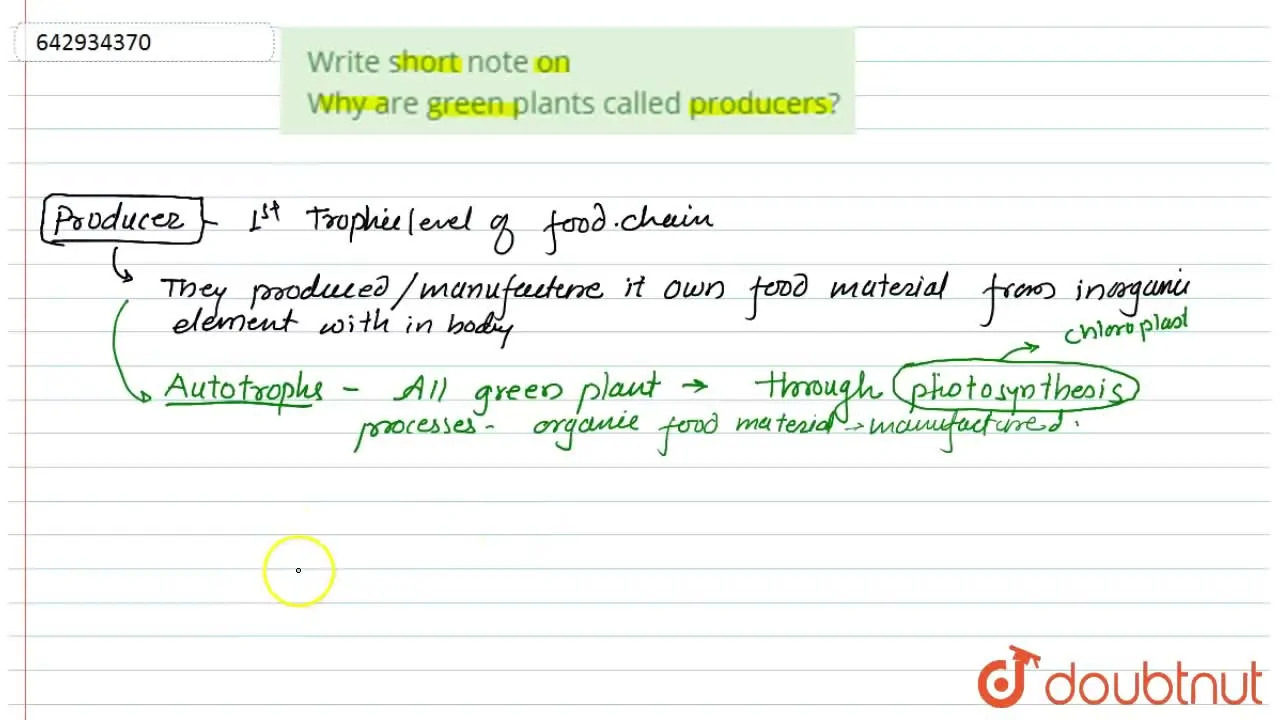 642934370
Write short note on
Why are green plants called producers?
Producer - 1st Trophic level of food.chain
They produced/manufacture it own food material from inorganic
element with in body
chloroplast
Autotrophs - All green plant → through photosynthesis
processes - organic food material → manufactured.
doubtnut